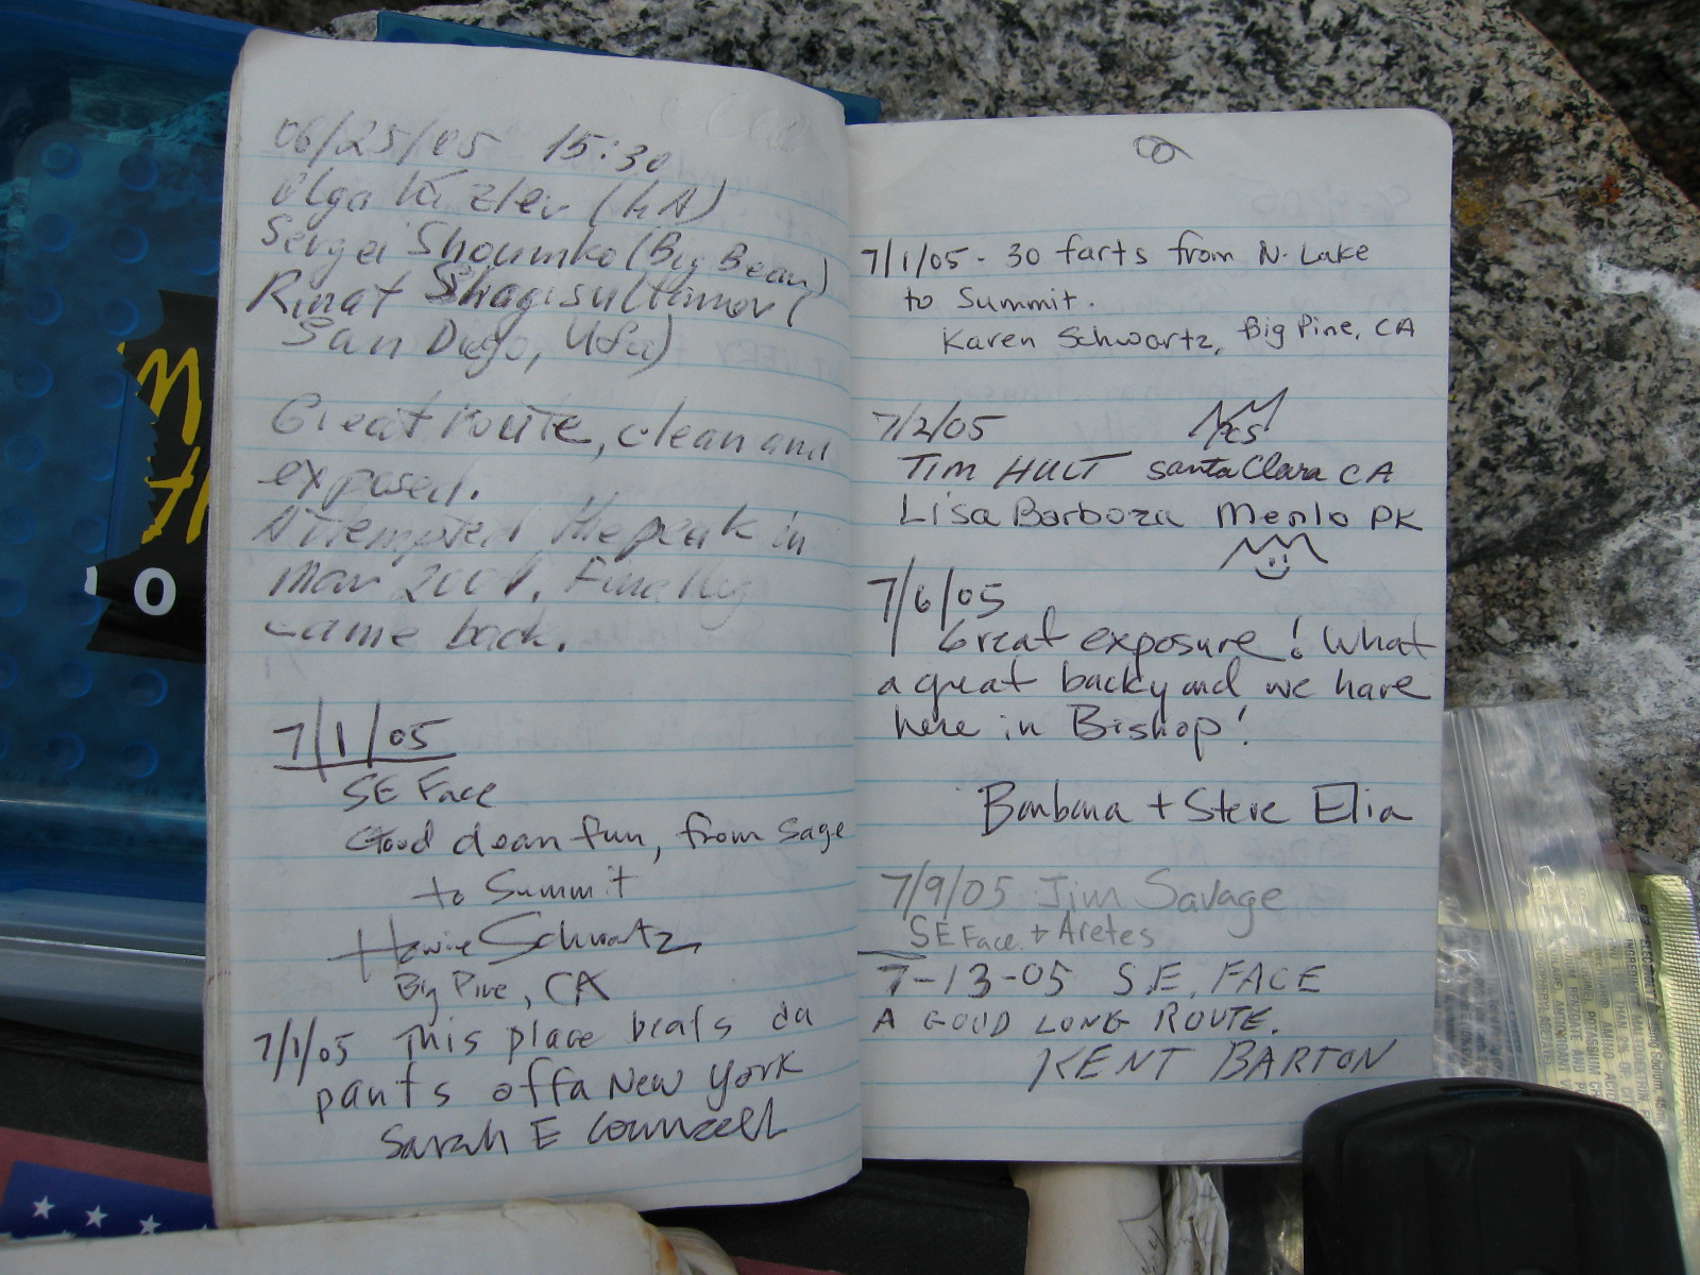 06/25/05 15:30
Olga Kozlev (LA)
Sergei Shoumko (Big Bear)
Rinat Shagisultanov (
San Diego, Ufa)
Great route, clean and
exposed.
Attempted the peak in
mar 2001. Finally
came back.
7/1/05
SE Face
Good clean fun, from Sage
to Summit
Howie Schwartz
Big Pine, CA
7/1/05 This place beats da
pants offa New York
Sarah E Counsell
7/1/05 - 30 farts from N. Lake
to Summit.
Karen Schwartz, Big Pine, CA
7/2/05 PCS
TIM HULT Santa Clara CA
Lisa Barboza Menlo PK
7/6/05
Great exposure! What
a great backyard we have
here in Bishop!
Barbara + Steve Elia
7/9/05 Jim Savage
SE Face + Aretes
7-13-05 S.E. FACE
A GOOD LONG ROUTE.
KENT BARTON